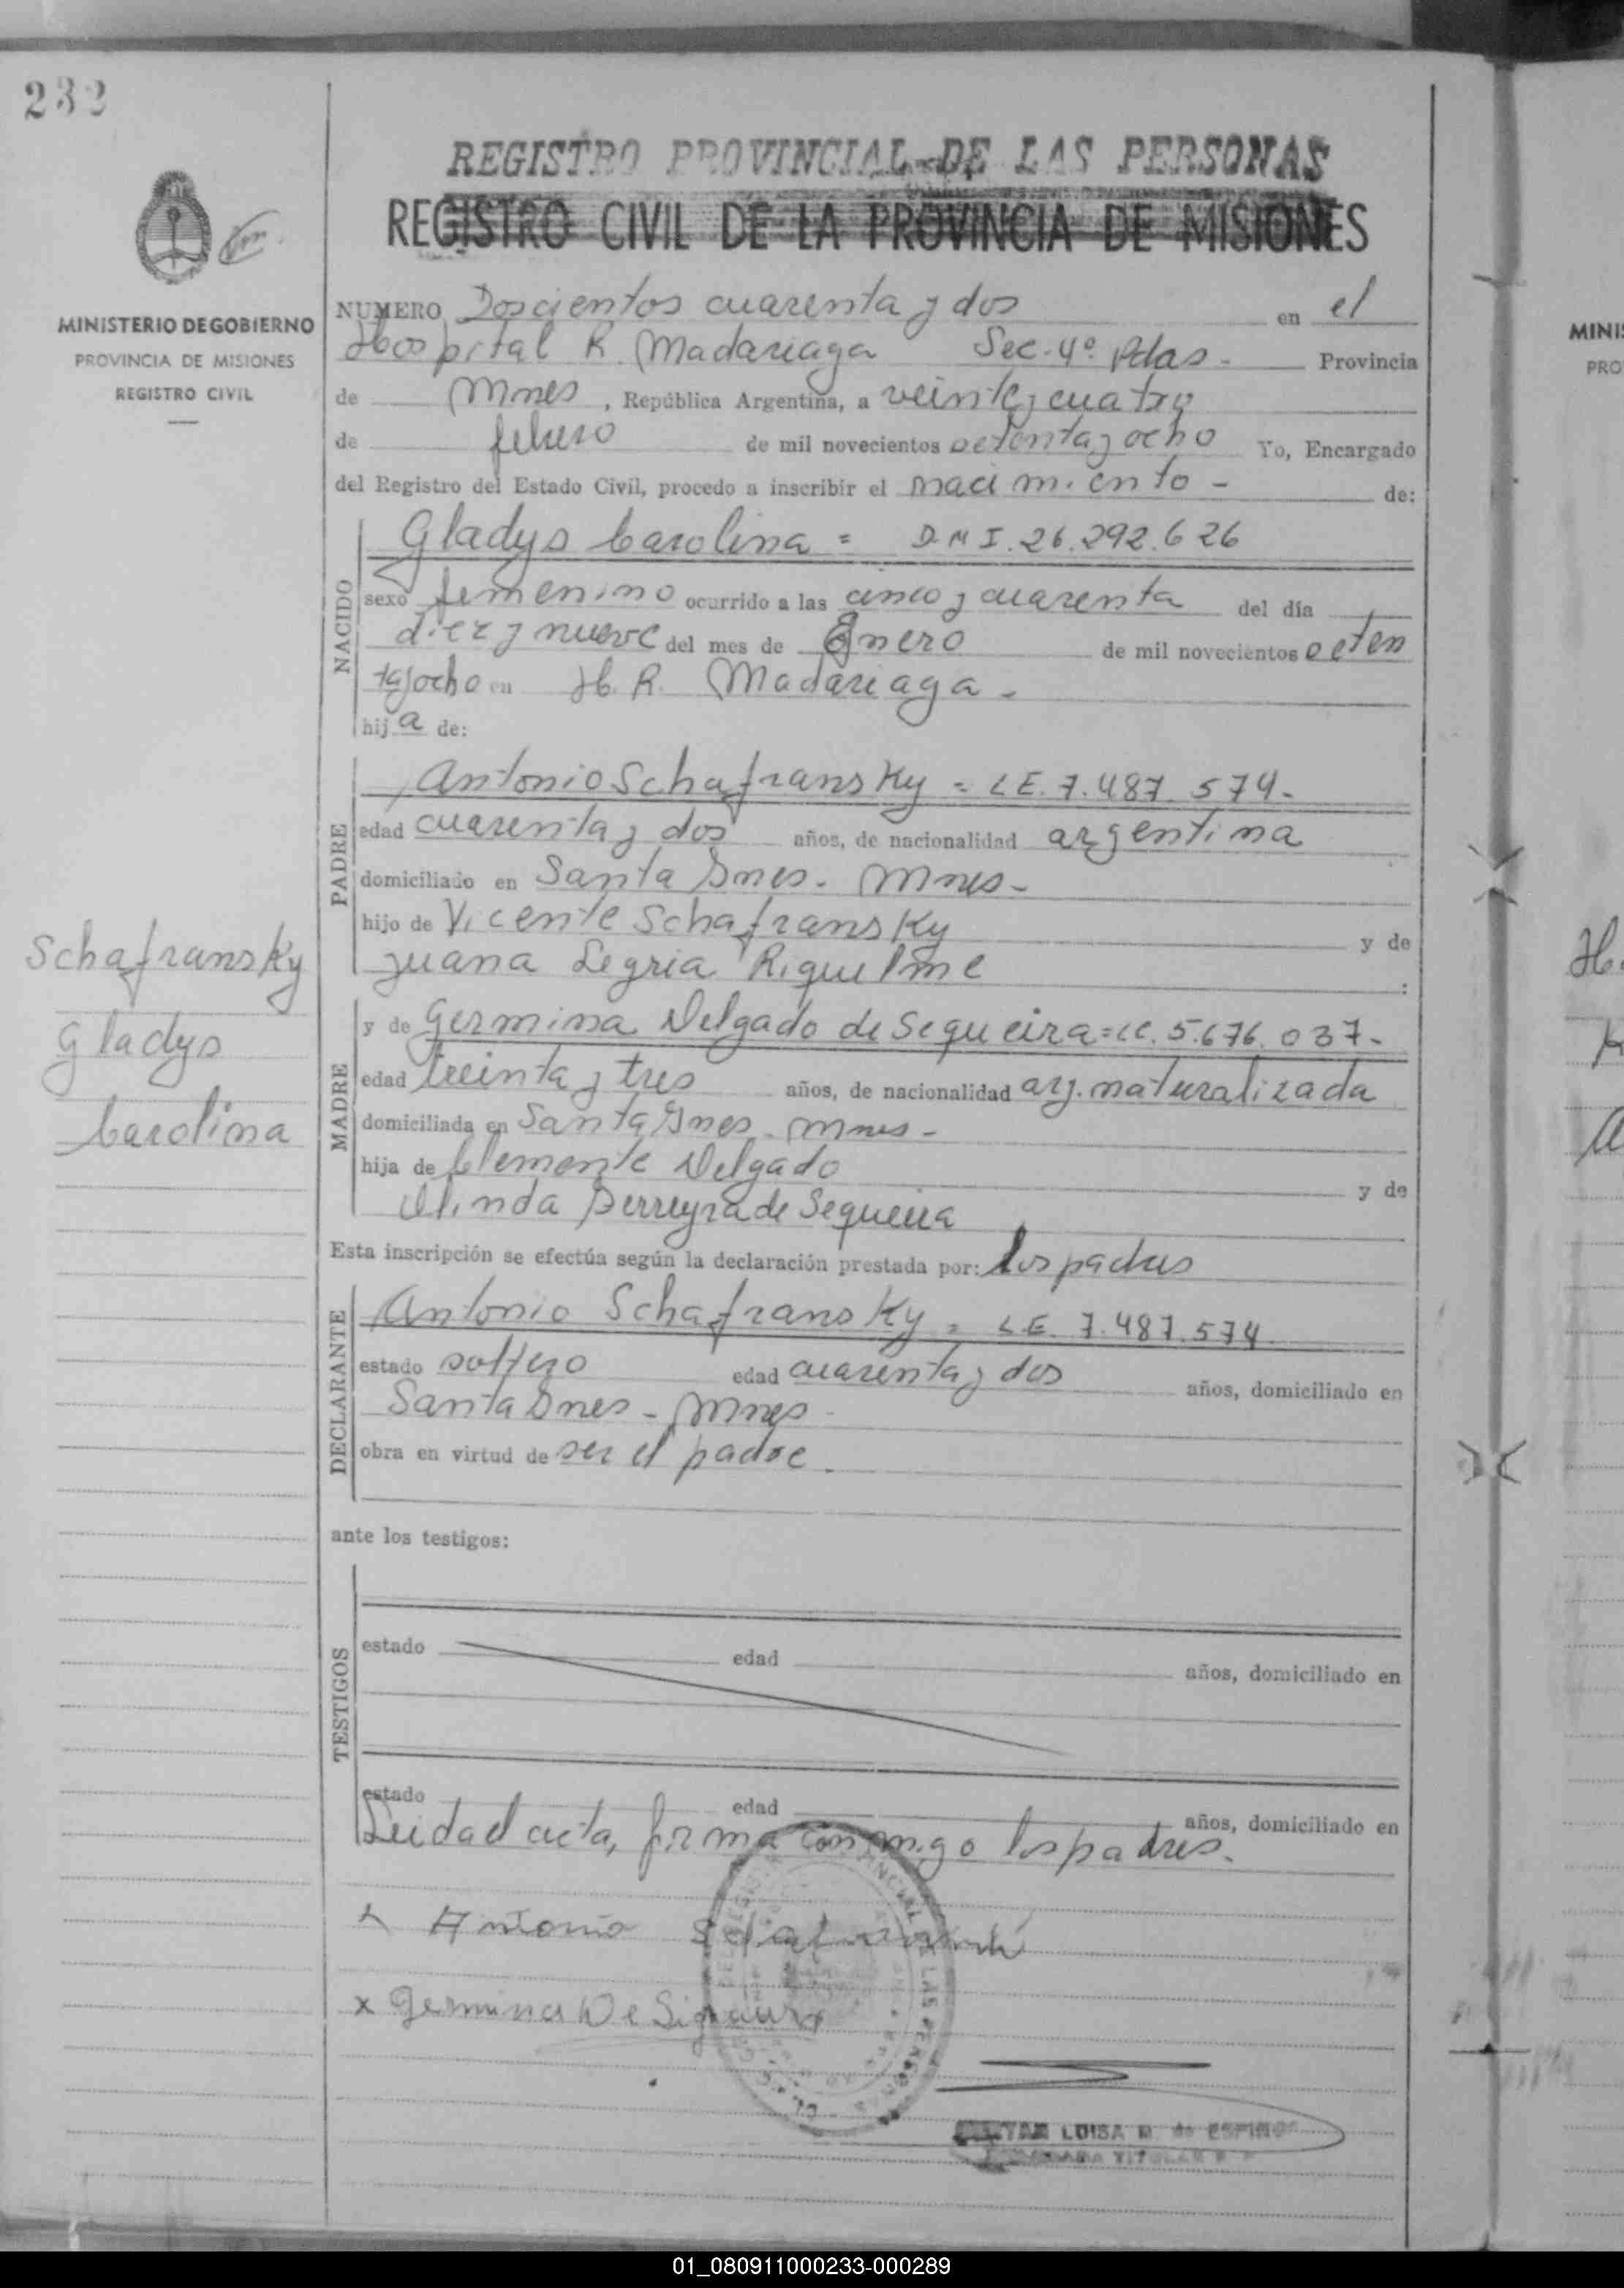 232
REGISTRO PROVINCIAL DE LAS PERSONAS
REGISTRO CIVIL DE LA PROVINCIA DE MISIONES
MINISTERIO DE GOBIERNO
PROVINCIA DE MISIONES
REGISTRO CIVIL
NUMERO Doscientos cuarenta y dos en el
Hospital R. Madariaga Sec. 4º Pdas - Provincia
de Mnes, República Argentina, a veinte y cuatro
de febrero de mil novecientos setenta y ocho Yo, Encargado
del Registro del Estado Civil, procedo a inscribir el nacimiento - de:
NACIDO
Gladys Carolina = D.N I. 26.292.626
sexo femenino ocurrido a las cinco y cuarenta del día
diez y nueve del mes de Enero de mil novecientos seten
ta y ocho en H. R. Madariaga -
hija de:
PADRE
Antonio Schafransky = LE. 7.487.574-
edad cuarenta y dos años, de nacionalidad argentina
domiciliado en Santa Ines - Mnes -
hijo de Vicente Schafransky y de
Juana Legria Riquelme :
Schafransky
Gladys
Carolina
MADRE
y de Germina Delgado de Sequeira = LC. 5.676.037-
edad treinta y tres años, de nacionalidad arg. naturalizada
domiciliada en Santa Ines - Mnes -
hija de Clemente Delgado y de
Olinda Ferreyra de Sequeira
Esta inscripción se efectúa según la declaración prestada por: los padres
DECLARANTE
Antonio Schafransky = LE. 7.487.574
estado soltero edad cuarenta y dos años, domiciliado en
Santa Ines - Mnes -
obra en virtud de ser el padre.
ante los testigos:
TESTIGOS
estado edad años, domiciliado en
estado edad años, domiciliado en
Leida el acta, firma conmigo los padres.
x Antonio
x Germina De
LUISA de ESPINO
TITULAR
MINIS
PRO
01_080911000233-000289